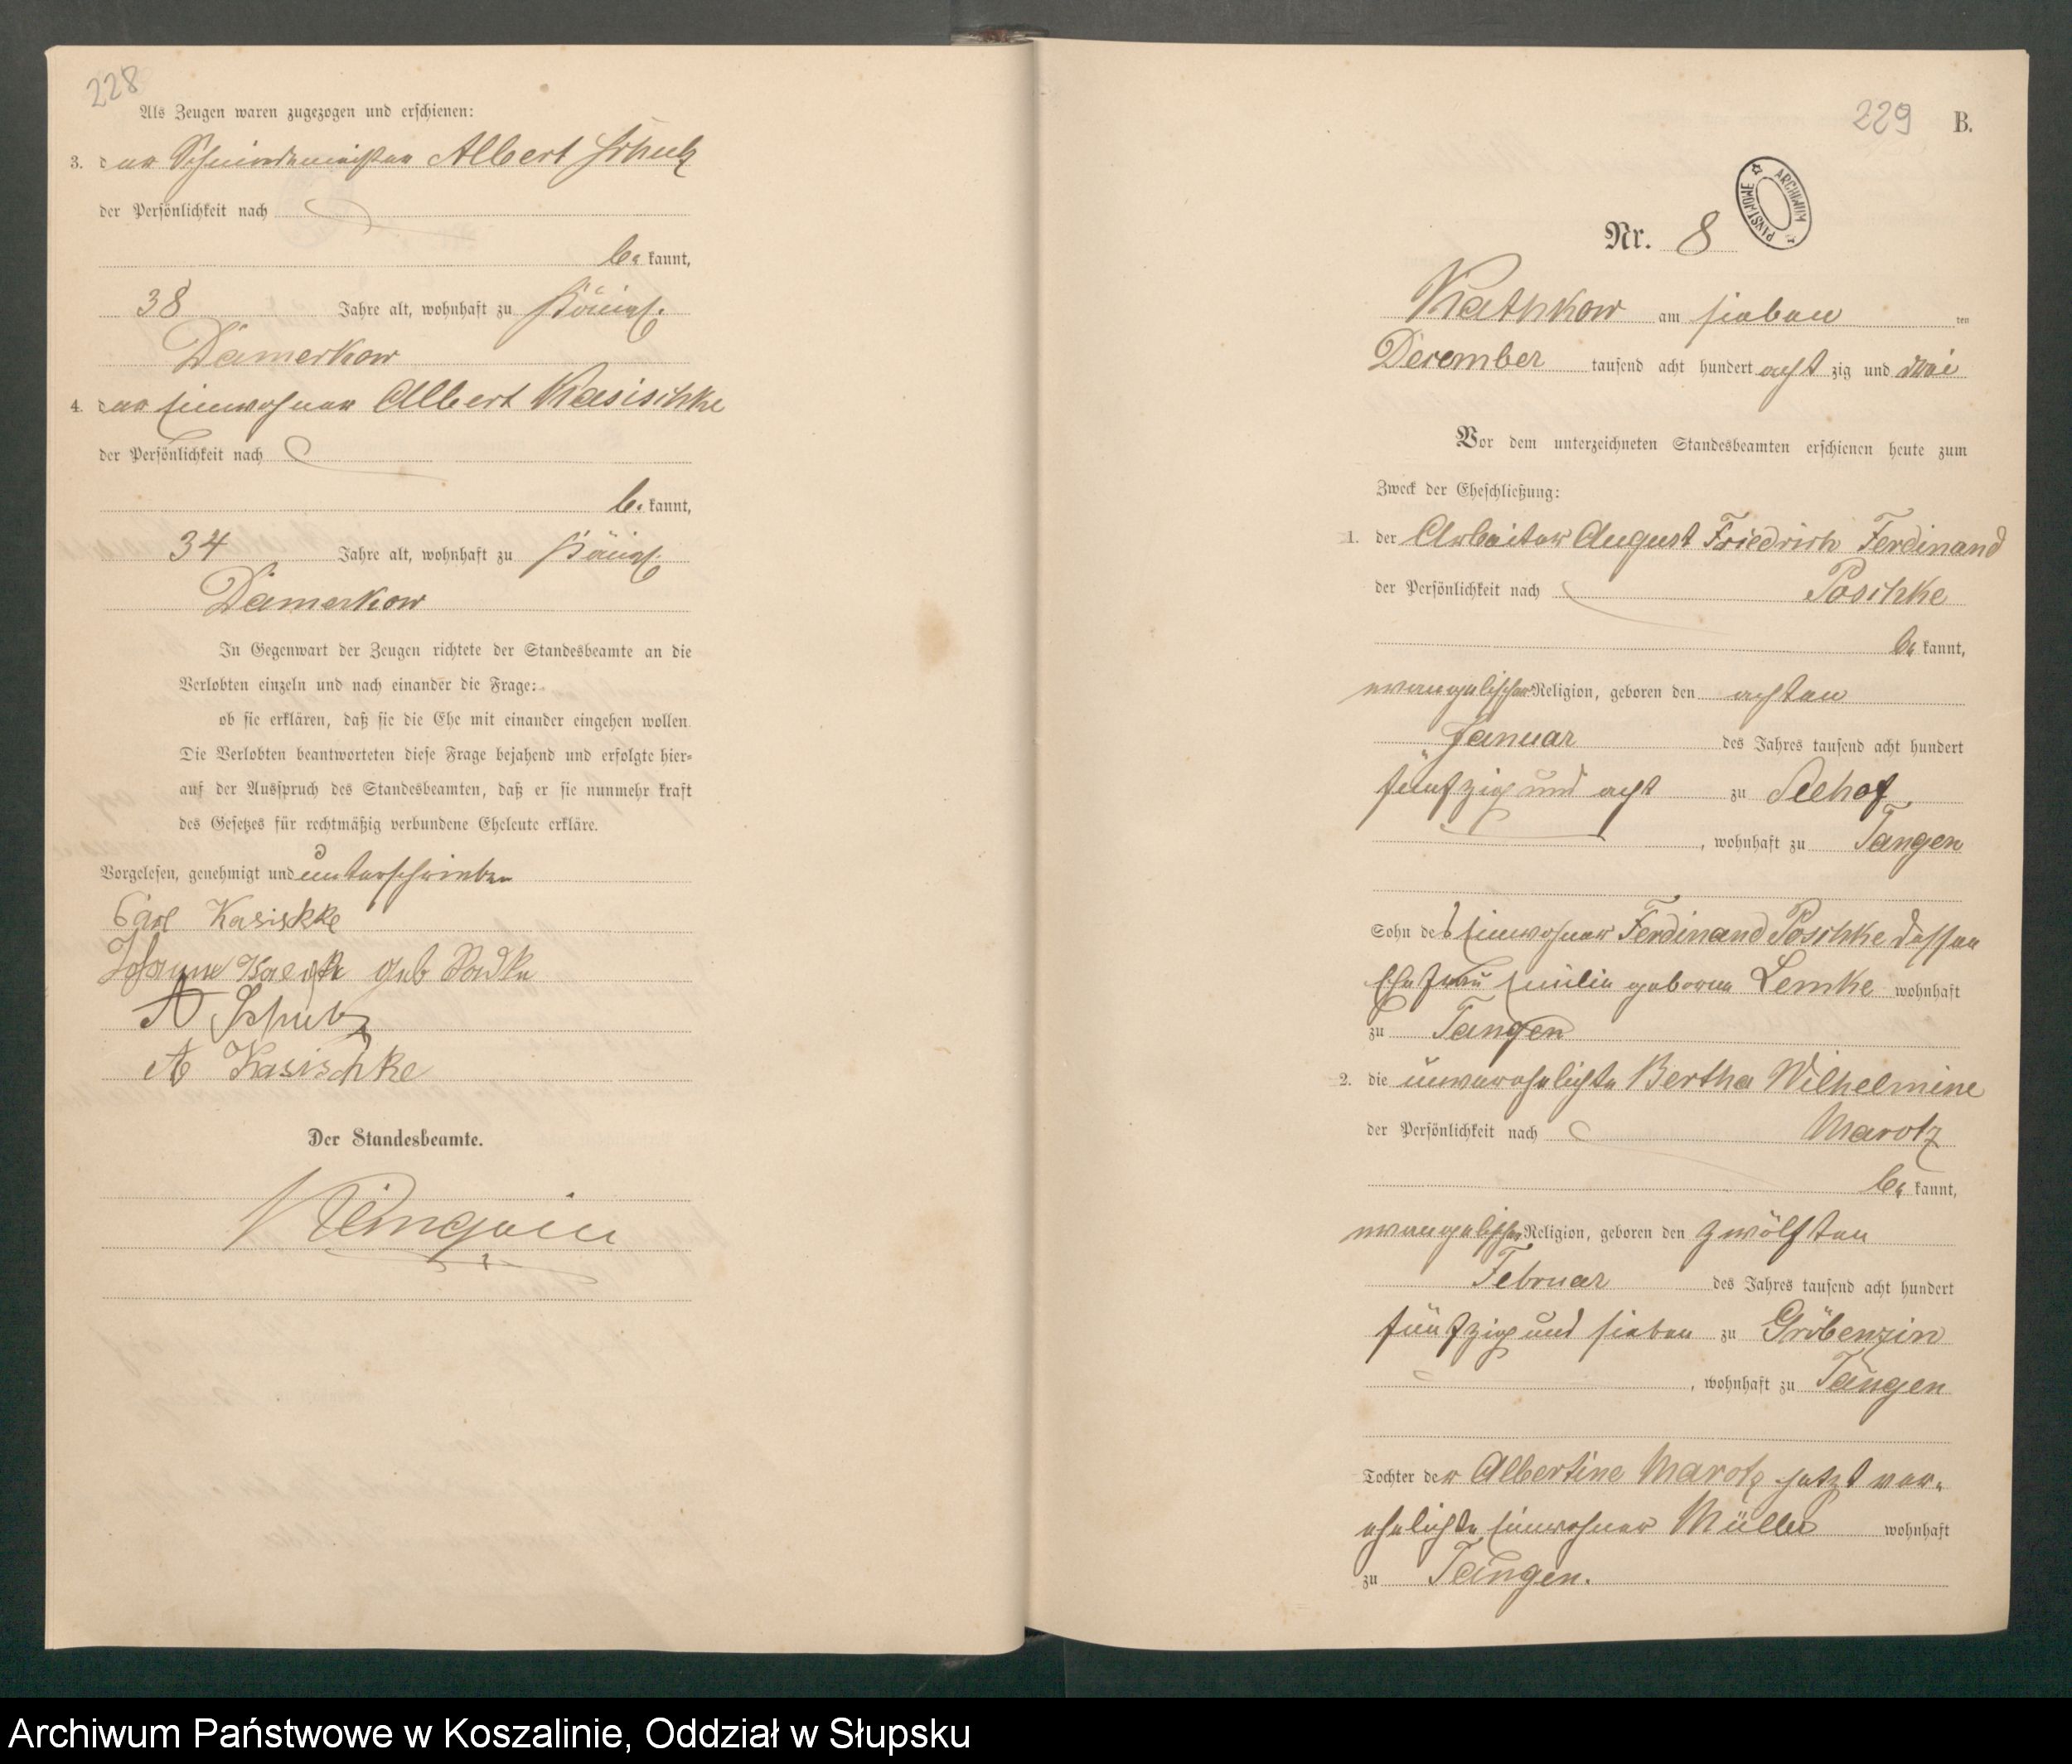 228
Als Zeugen waren zugezogen und erschienen:
3. der Schmiedemeister Albert Schulz
der Persönlichkeit nach
be kannt,
38 Jahre alt, wohnhaft zu Königl.
Damerkow
4. der Einwohner Albert Kasischke
der Persönlichkeit nach
be kannt,
34 Jahre alt, wohnhaft zu Königl.
Damerkow
In Gegenwart der Zeugen richtete der Standesbeamte an die
Verlobten einzeln und nach einander die Frage:
ob sie erklären, daß sie die Ehe mit einander eingehen wollen.
Die Verlobten beantworteten diese Frage bejahend und erfolgte hier=
auf der Ausspruch des Standesbeamten, daß er sie nunmehr kraft
des Gesetzes für rechtmäßig verbundene Eheleute erkläre.
Vorgelesen, genehmigt und unterschrieben
Carl Kasiskke
Johanne geb Radke
A Schulz
A Kasischke
Der Standesbeamte.
229 B.
ARCHIWUM PAŃSTWOWE
Nr. 8
Rathkow am sieben ten
December tausend acht hundert acht zig und zwei
Vor dem unterzeichneten Standesbeamten erschienen heute zum
Zweck der Eheschließung:
1. der Arbeiter August Friedrich Ferdinand
der Persönlichkeit nach Poschke
be kannt,
evangelischer Religion, geboren den achten
Januar des Jahres tausend acht hundert
fünfzig und acht zu Seehof
, wohnhaft zu Tangen
Sohn des Einwohner Ferdinand Poschke dessen
Ehefrau Emilie geborne Lemke wohnhaft
zu Tangen
2. die unverehelichte Bertha Wilhelmine
der Persönlichkeit nach Marotz
be kannt,
evangelischer Religion, geboren den zwölften
Februar des Jahres tausend acht hundert
fünfzig und sieben zu Gröbenzin
, wohnhaft zu Tangen
Tochter der Albertine Marotz jetzt ver=
ehelichte Einwohner Müller wohnhaft
zu Tangen.
Archiwum Państwowe w Koszalinie, Oddział w Słupsku